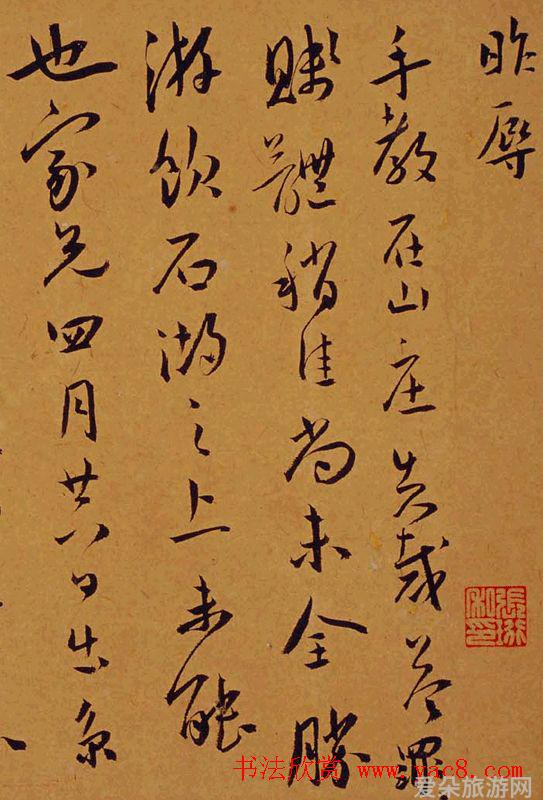 昨辱
手教在山庄失裁答罪
賤體稍佳尚未全勝
游飲石湖之上未能
也家兄四月廿八日出京
書法欣赏 www.yac8.com
爱朵旅游网